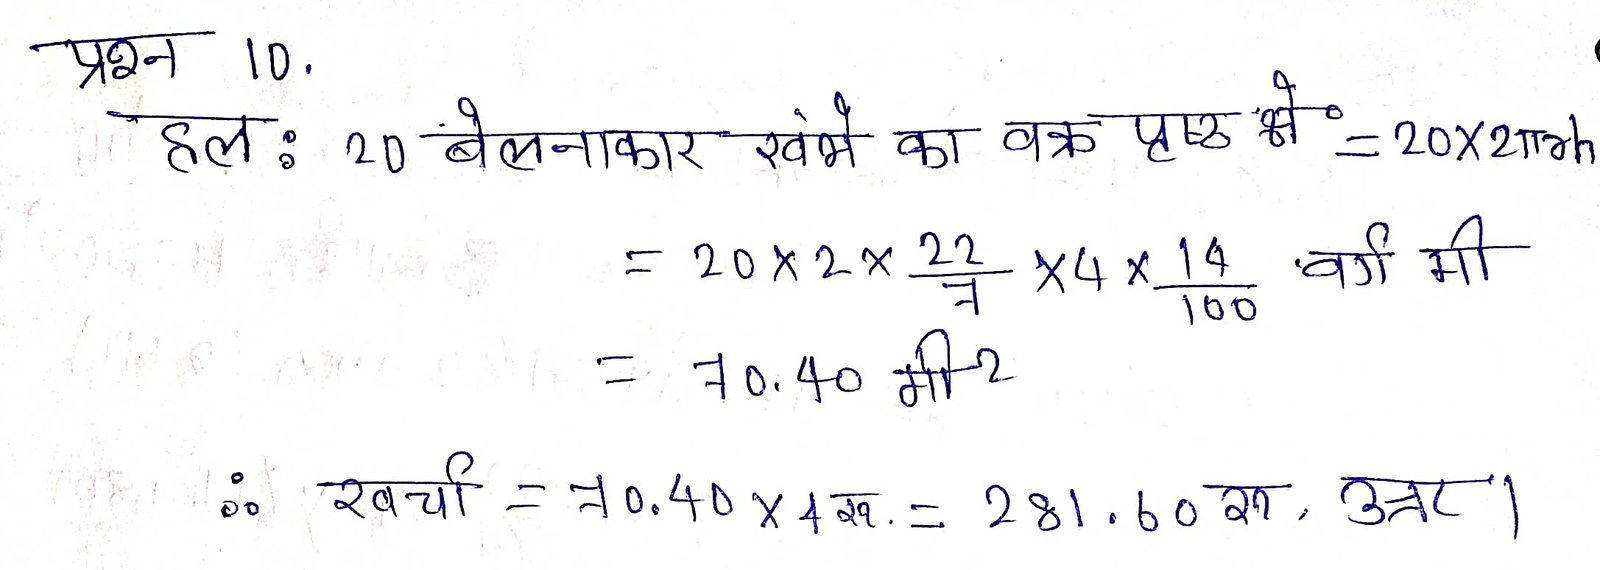 प्रश्न 10.
हल: 20 बेलनाकार खंभे का वक्र पृष्ठ क्षे° = 20×2πrh
= 20 × 2 × 22/7 × 4 × 14/100 वर्ग मी
= 70.40 मी²
∴ खर्चा = 70.40 × 4 रू. = 281.60 रू. उत्तर।